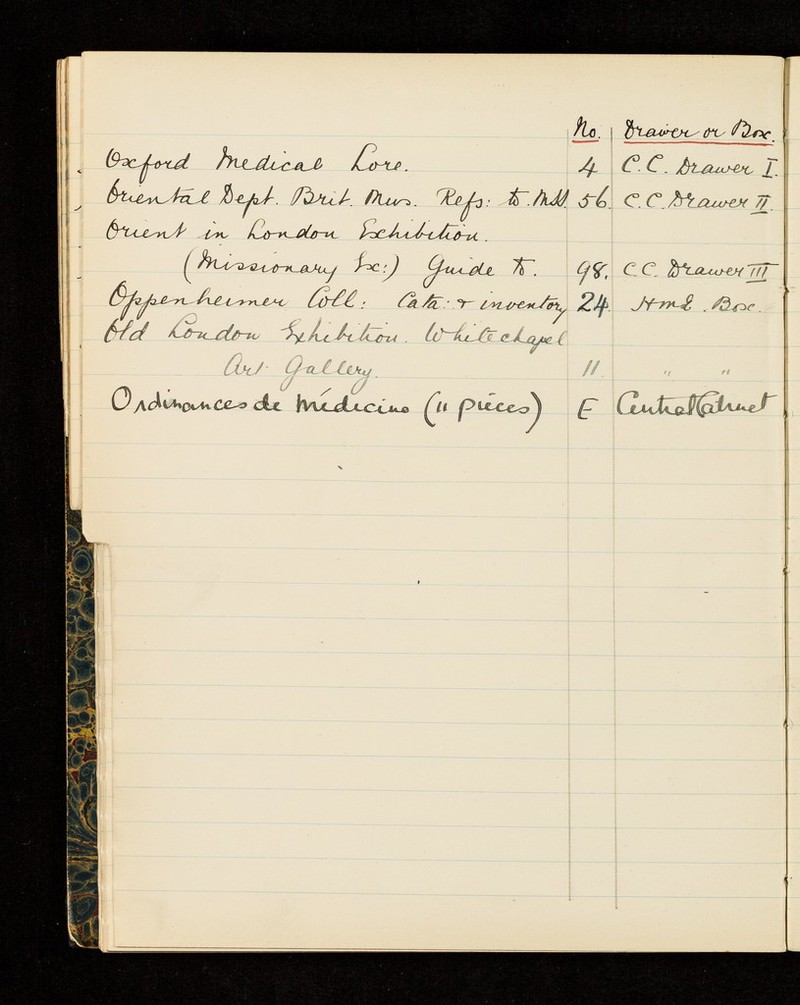 No. Drawer or Box.
Oxford Medical Lore. 4 C.C. Drawer I.
Oriental Dept. Brit. Mus. Refs: to. MSS. 56. C.C. Drawer II.
Orient in London Exhibition.
(Missionary Ex:) Guide to. 98. C.C. Drawer III
Oppenheimer Coll: Cata: & inventory 24. Box.
Old London Exhibition. Whitechapel
Art Gallery. 11. " "
Ordinances de Médecine (11 pièces) E Central Cabinet